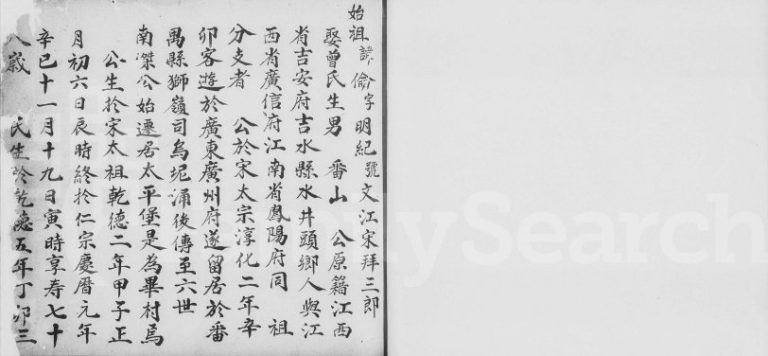 始祖諱倫字明紀號文江宋拜三郎
娶曾氏生男 番山 公原籍江西
省吉安府吉水縣水井頭鄉人與江
西省廣信府江南省鳳陽府同 祖
分支者 公於宋太宗淳化二年辛
卯客遊於廣東廣州府遂留居於番
禺縣獅嶺司烏坭涌後傳至六世
南傑公始遷居太平堡是為畢村焉
公生於宋太祖乾德二年甲子正
月初六日辰時終於仁宗慶曆元年
辛巳十一月十九日寅時享寿七十
八歲 氏生於乾德五年丁卯三
FamilySearch